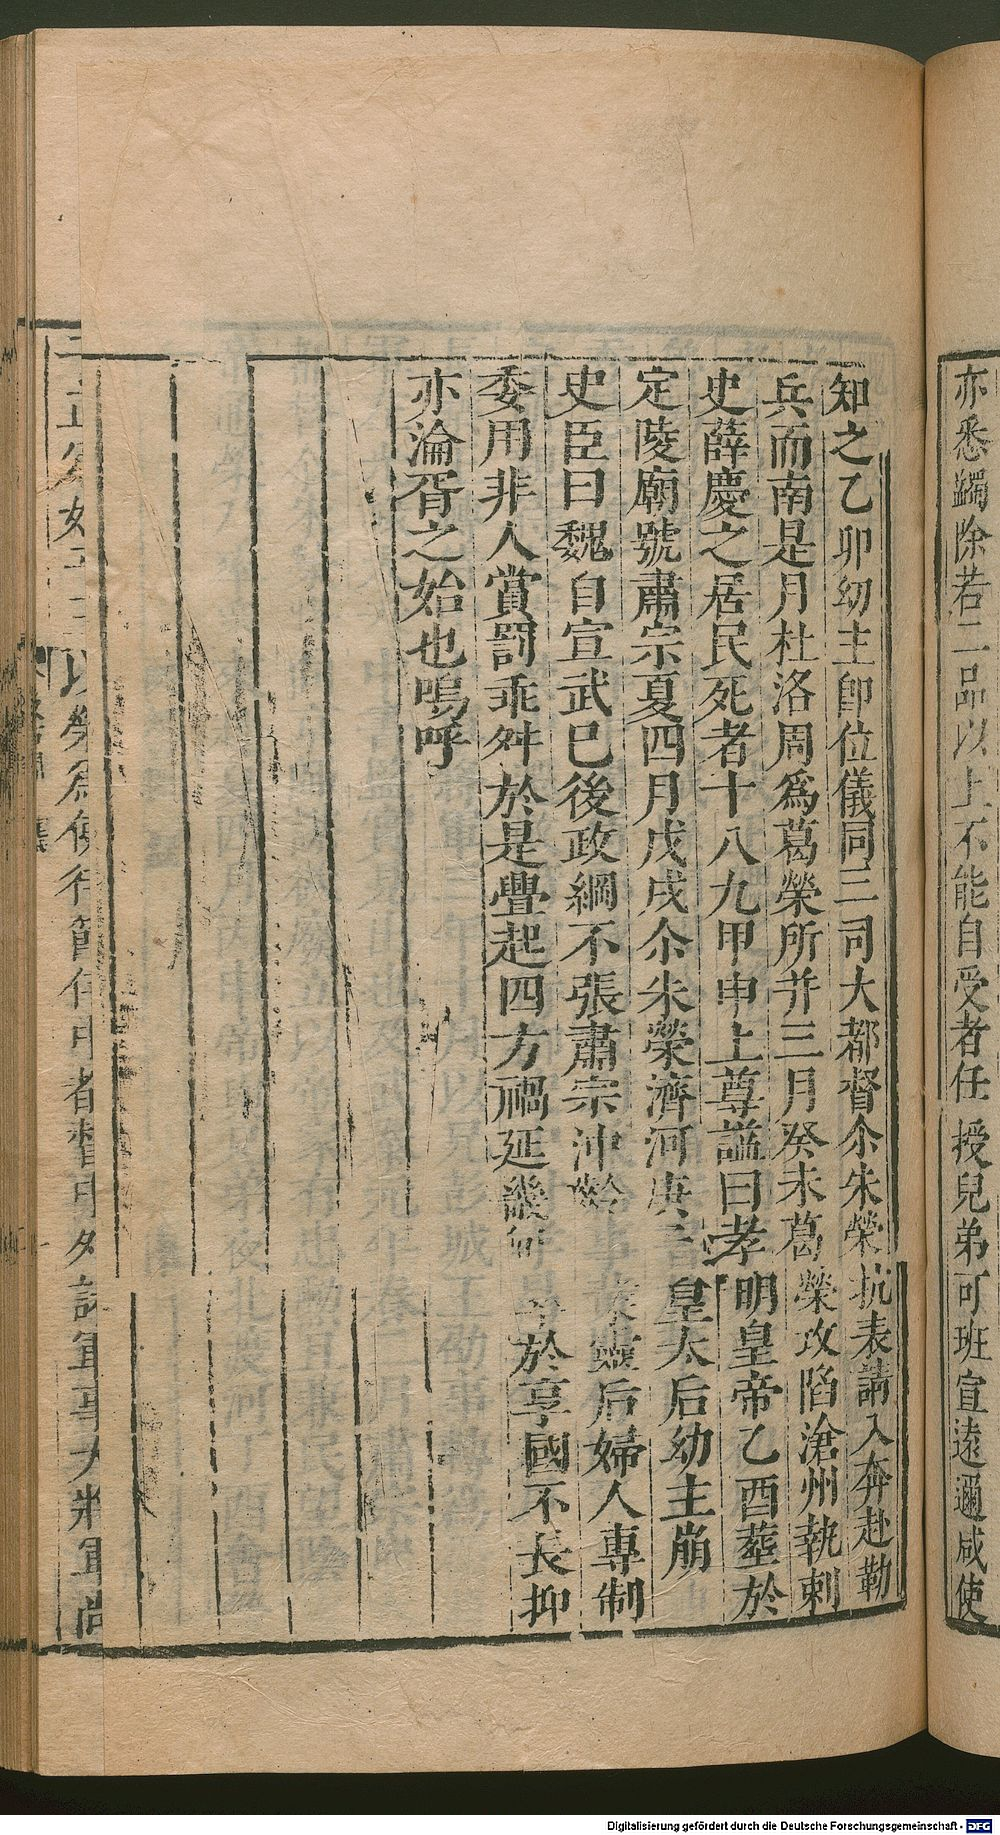 亦悉蠲除若二品以上不能自受者任授兒弟可班宣遠邇咸使
知之乙卯幼主卽位儀同三司大都督尒朱榮抗表請入奔赴勒
兵而南是月杜洛周爲葛榮所并三月癸未葛榮攻陷滄州執刺
史薛慶之居民死者十八九甲申上尊謚曰孝明皇帝乙酉葬於
定陵廟號肅宗夏四月戊戌尒朱榮濟河庚子皇太后幼主崩
史臣曰魏自宣武已後政綱不張肅宗沖齡靈后婦人專制
委用非人賞罰乖舛於是舋起四方禍延畿甸於享國不長抑
亦淪胥之始也嗚呼
Digitalisierung gefördert durch die Deutsche Forschungsgemeinschaft - DFG